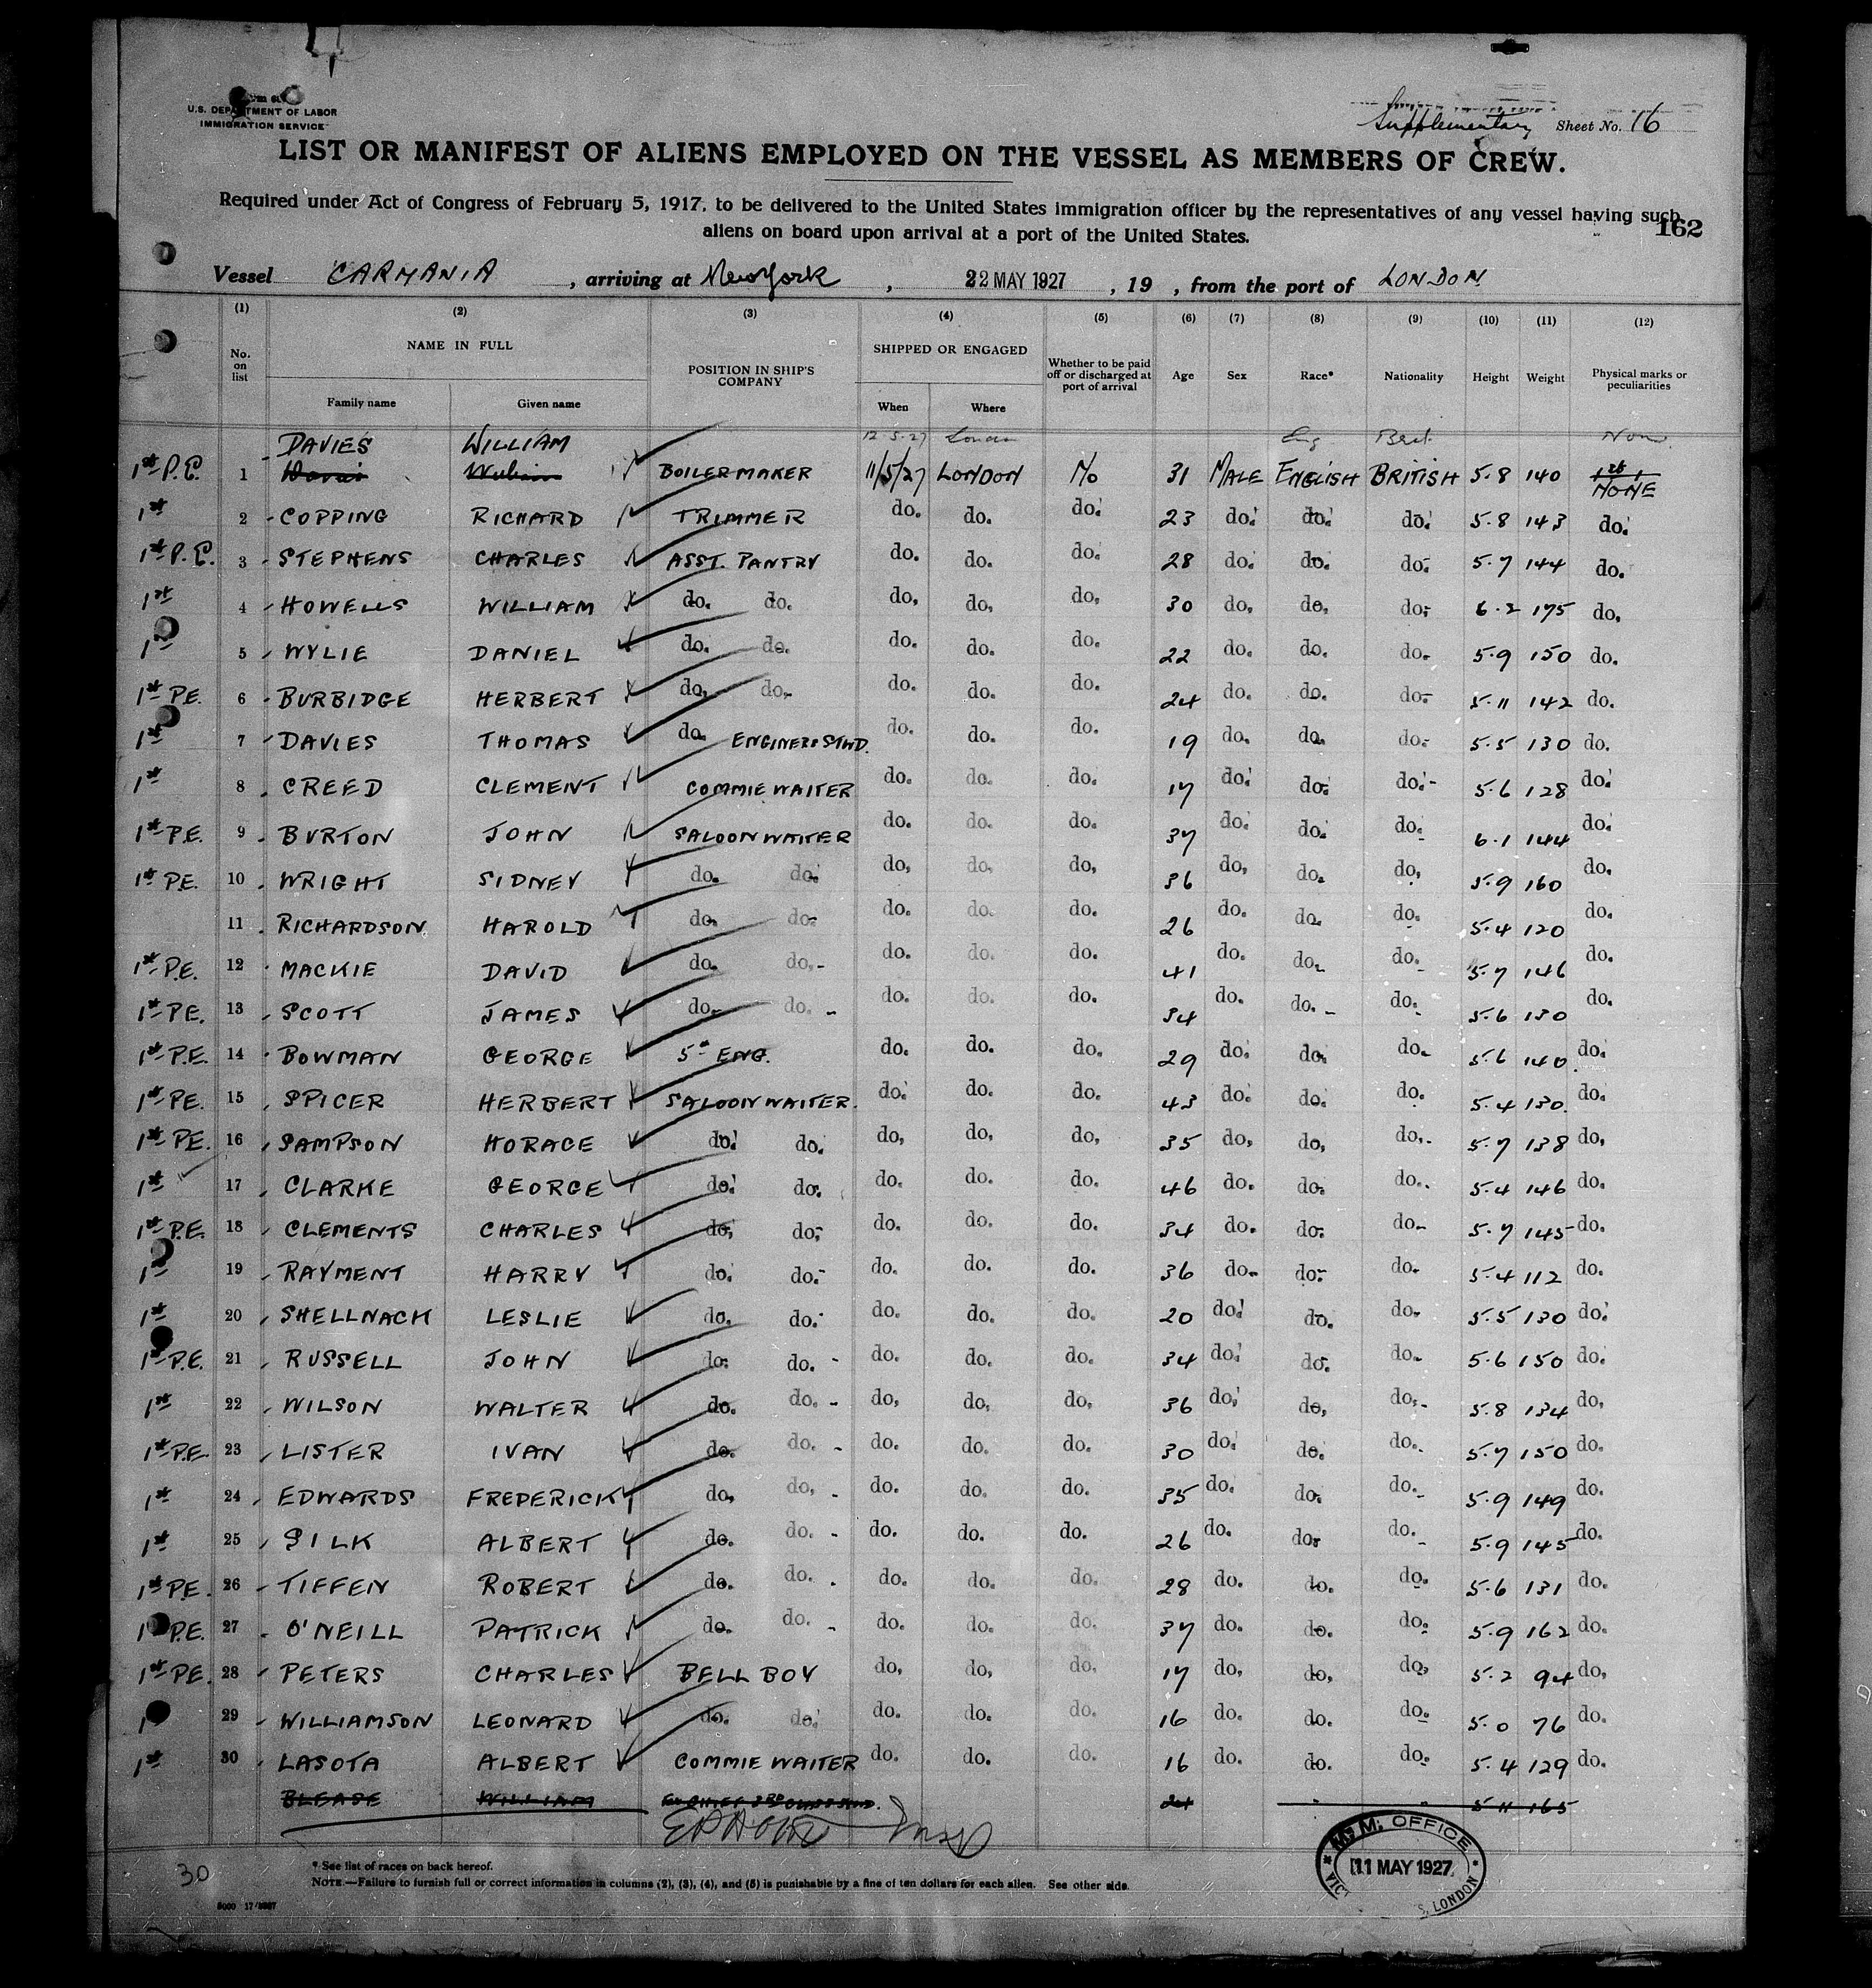 U.S. DEPARTMENT OF LABOR
IMMIGRATION SERVICE
Supplementary Sheet No. 16
LIST OR MANIFEST OF ALIENS EMPLOYED ON THE VESSEL AS MEMBERS OF CREW.
Required under Act of Congress of February 5, 1917, to be delivered to the United States immigration officer by the representatives of any vessel having such
aliens on board upon arrival at a port of the United States.
162
Vessel CARMANIA , arriving at New York , 22 MAY 1927 , 19 , from the port of LONDON
(1) (2) (3) (4) (5) (6) (7) (8) (9) (10) (11) (12)
No. on list NAME IN FULL Family name Given name POSITION IN SHIP'S COMPANY SHIPPED OR ENGAGED When Where Whether to be paid off or discharged at port of arrival Age Sex Race* Nationality Height Weight Physical marks or peculiarities
DAVIES WILLIAM 12.5.27 London Eng Brit. None
1st P.E. 1 BOILERMAKER 11/5/27 LONDON No 31 MALE ENGLISH BRITISH 5.8 140 NONE
1st 2 COPPING RICHARD TRIMMER do. do. do. 23 do. do. do. 5.8 143 do.
1st P.E. 3 STEPHENS CHARLES ASST. PANTRY do. do. do. 28 do. do. do. 5.7 144 do.
1st 4 HOWELLS WILLIAM do. do. do. do. do. 30 do. do. do. 6.2 175 do.
1st 5 WYLIE DANIEL do. do. do. do. do. 22 do. do. do. 5.9 150 do.
1st PE. 6 BURBIDGE HERBERT do. do. do. do. do. 24 do. do. do. 5.11 142 do.
1st 7 DAVIES THOMAS do. ENGINEERS STWD. do. do. do. 19 do. do. do. 5.5 130 do.
1st 8 CREED CLEMENT COMMIE WAITER do. do. do. 17 do. do. do. 5.6 128 do.
1st P.E. 9 BURTON JOHN SALOON WAITER do. do. do. 37 do. do. do. 6.1 144 do.
1st PE. 10 WRIGHT SIDNEY do. do. do. do. do. 36 do. do. do. 5.9 160 do.
11 RICHARDSON HAROLD do. do. do. do. do. 26 do. do. do. 5.4 120 do.
1st P.E. 12 MACKIE DAVID do. do. do. do. do. 41 do. do. do. 5.7 146 do.
1st PE. 13 SCOTT JAMES do. do. do. do. do. 34 do. do. do. 5.6 130 do.
1st P.E. 14 BOWMAN GEORGE 5th ENG. do. do. do. 29 do. do. do. 5.6 140 do.
1st PE. 15 SPICER HERBERT SALOON WAITER. do. do. do. 43 do. do. do. 5.4 130 do.
1st PE. 16 SAMPSON HORACE do. do. do. do. do. 35 do. do. do. 5.7 138 do.
1st 17 CLARKE GEORGE do. do. do. do. do. 46 do. do. do. 5.4 146 do.
1st P.E. 18 CLEMENTS CHARLES do. do. do. do. do. 34 do. do. do. 5.7 145 do.
1st 19 RAYMENT HARRY do. do. do. do. do. 36 do. do. do. 5.4 112 do.
1st 20 SHELLNACK LESLIE do. do. do. do. do. 20 do. do. do. 5.5 130 do.
1st P.E. 21 RUSSELL JOHN do. do. do. do. do. 34 do. do. do. 5.6 150 do.
1st 22 WILSON WALTER do. do. do. do. do. 36 do. do. do. 5.8 134 do.
1st P.E. 23 LISTER IVAN do. do. do. do. do. 30 do. do. do. 5.7 150 do.
1st 24 EDWARDS FREDERICK do. do. do. do. do. 35 do. do. do. 5.9 149 do.
1st 25 SILK ALBERT do. do. do. do. do. 26 do. do. do. 5.9 145 do.
1st PE. 26 TIFFEN ROBERT do. do. do. do. do. 28 do. do. do. 5.6 131 do.
1 P.E. 27 O'NEILL PATRICK do. do. do. do. do. 37 do. do. do. 5.9 162 do.
1st PE. 28 PETERS CHARLES BELL BOY do. do. do. 17 do. do. do. 5.2 94 do.
1 29 WILLIAMSON LEONARD do. do. do. do. do. 16 do. do. do. 5.0 76 do.
1st 30 LASOTA ALBERT COMMIE WAITER do. do. do. 16 do. do. do. 5.4 129 do.
BLEASE WILLIAM 24 " " 5 11 165
30
* See list of races on back hereof.
NOTE.—Failure to furnish full or correct information in columns (2), (3), (4), and (5) is punishable by a fine of ten dollars for each alien. See other side.
M.M. OFFICE
11 MAY 1927
LONDON